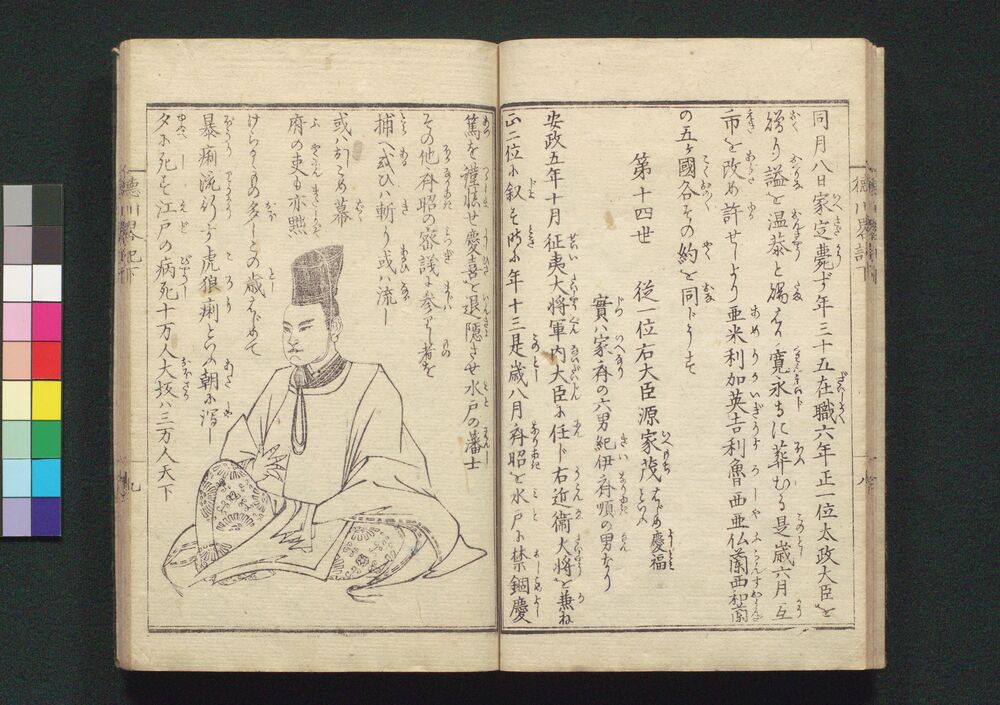 同月八日家定薨ず年三十五在職六年正一位太政大臣を
贈り謚を温恭と賜ふ寛永寺に葬むる是歳六月互
市を改め許せしより亜米利加英吉利魯西亜仏蘭西和蘭
の五ヶ國各その約を同じうす
第十四世 従一位右大臣源家茂はじめ慶福といふ
實ハ家斉の六男紀伊斉順の男なり
安政五年十月征夷大将軍内大臣に任じ右近衛大将を兼ね
正二位に叙す時に年十三是歳八月斉昭を水戸に禁錮慶
篤を謹慎せ慶喜を退隠させ水戸の藩士
その他斉昭の密議に参りし者を
捕へ或ひハ斬り或ハ流し
或ハおしこめ幕
府の吏も亦黙
けらるゝもの多しこの歳はじめて
暴痢流行す虎狼痢といふ朝に瀉し
夕に死す江戸の病死十万人大坂ハ三万人天下
徳川畧記下
八
徳川畧記下
九